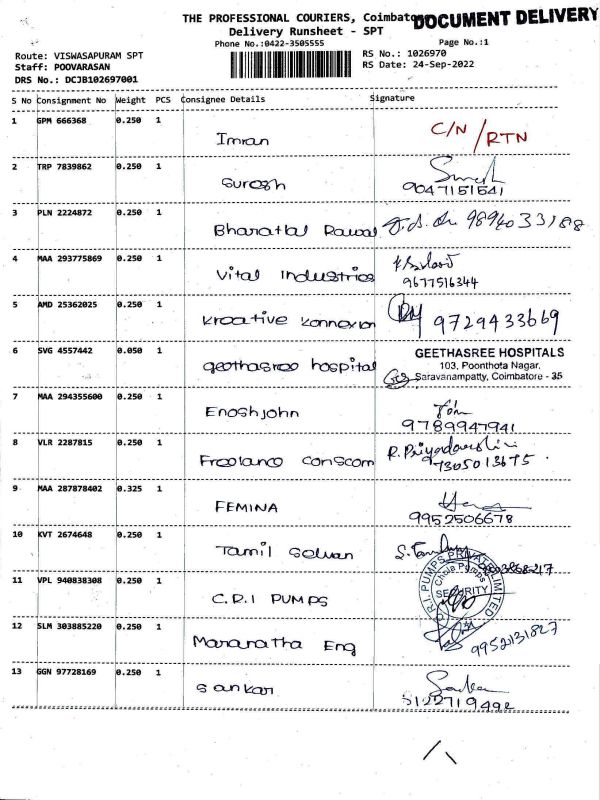 THE PROFESSIONAL COURIERS, Coimbatore
DOCUMENT DELIVERY
Delivery Runsheet - SPT
Phone No.:0422-3505555 Page No.:1
Route: VISWASAPURAM SPT RS No.: 1026970
Staff: POOVARASAN RS Date: 24-Sep-2022
DRS No.: DCJB102697001
S No Consignment No Weight PCS Consignee Details Signature
1 GPM 666368 0.250 1 Imran C/N / RTN
2 TRP 7839862 0.250 1 Suresh
9047151541
3 PLN 2224872 0.250 1 Bharatlal Rawal 9894033188
4 MAA 293775869 0.250 1 Vital Industries
9677516344
5 AMD 25362025 0.250 1 Kreative Konnexion 9729433669
6 SVG 4557442 0.050 1 geethasree hospital
GEETHASREE HOSPITALS
103, Poonthota Nagar,
Saravanampatty, Coimbatore - 35
7 MAA 294355600 0.250 1 Enoshjohn
9789947941
8 VLR 2287815 0.250 1 Freelance Conscom R. Priyadarshini
7305013675
9 MAA 287878402 0.325 1 FEMINA
9952506678
10 KVT 2674648 0.250 1 Tamil Selvan
11 VPL 940838308 0.250 1 C.R.I PUMPS
C.R.I. PUMPS PRIVATE LIMITED
SECURITY
12 SLM 303885220 0.250 1 Maranatha Eng 9952131827
13 GGN 97728169 0.250 1 Sankar
5122719492